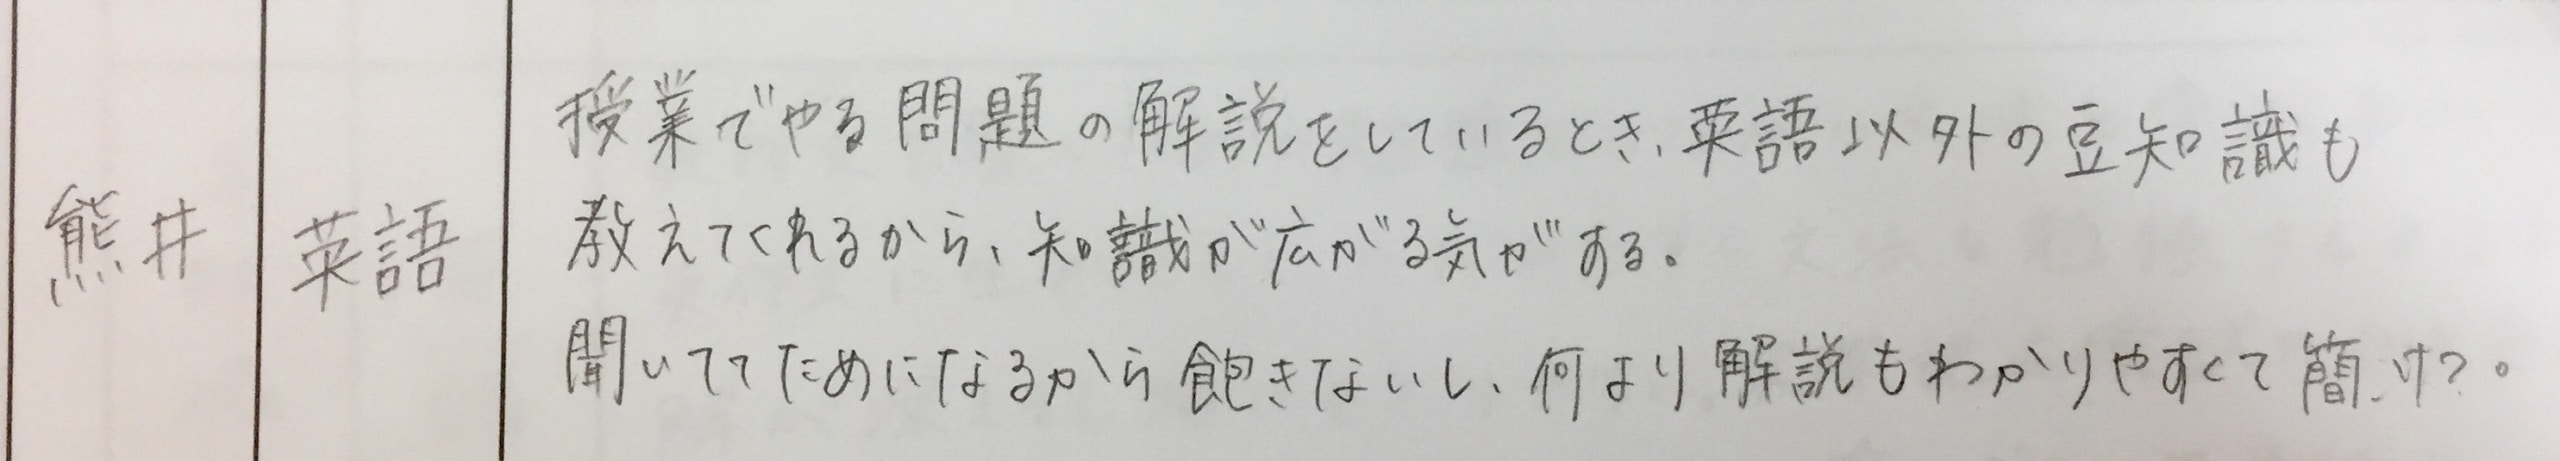 熊井
英語
授業でやる問題の解説をしているとき、英語以外の豆知識も
教えてくれるから、知識が広がる気がする。
聞いててためになるから飽きないし、何より解説もわかりやすくて簡けつ。